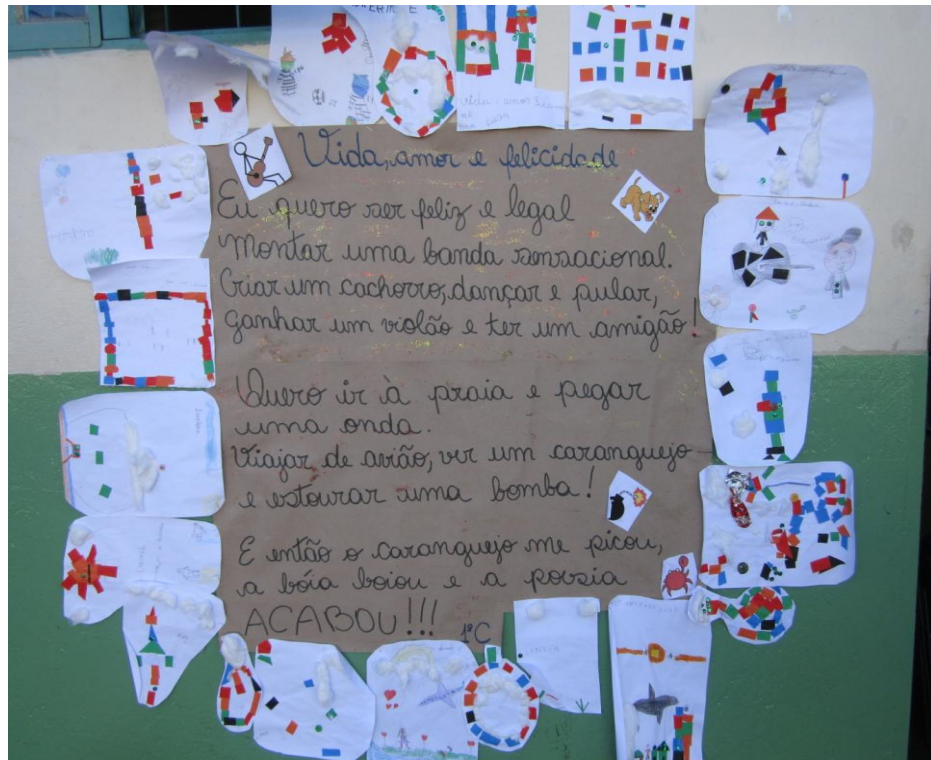 Vida, amor e felicidade
Eu quero ser feliz e legal
Montar uma banda sensacional.
Criar um cachorro, dançar e pular,
ganhar um violão e ter um amigão!
Quero ir à praia e pegar
uma onda.
Viajar de avião, ver um caranguejo
e estourar uma bomba!
E então o caranguejo me picou,
a bóia boiou e a poesia
ACABOU!!! 1°C